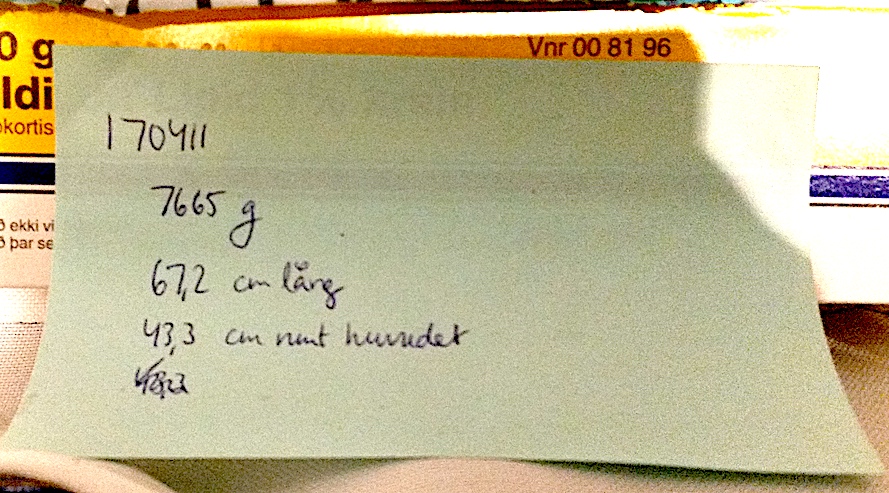 0 g
Vnr 00 81 96
ldi
okortis
170411
7665 g
ð ekki vi
ð þar se
67,2 cm lång
43,3 cm runt huvudet